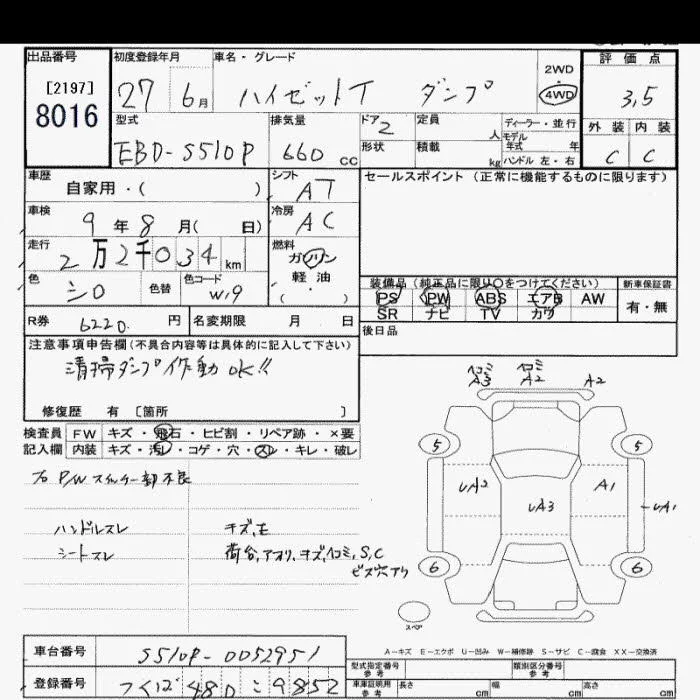 出品番号 初度登録年月 車名・グレード 評価点
[2197] 8016
27 6月 ハイゼットT ダンプ 2WD・4WD 3,5
型式 排気量 ドア 2 定員 人 ディーラー・並行 外装 内装
EBD-S510P 660cc 形状 積載 kg モデル年式 年 ハンドル 左・右 C C
車歴 自家用・( ) シフト AT セールスポイント(正常に機能するものに限ります)
車検 9年8月( 日) 冷房 AC
走行 2万2千034km 燃料 ガソリン 軽油 ( )
色 シロ 色替 色コード W19 装備品(純正品に限り○をつけてください) 新車保証書
PS PW ABS エアB AW 有・無
SR ナビ TV カワ
R券 6220.円 名変期限 月 日 後日品
注意事項申告欄(不具合内容等は具体的に記入して下さい)
清掃ダンプ作動OK!!
修復歴 有 [箇所 ]
検査員 FW キズ・飛石・ヒビ割・リペア跡・×要
記入欄 内装 キズ・汚レ・コゲ・穴・スレ・キレ・破レ
P/Wスイッチ一部不良
ハンドルスレ キズ,E
シートスレ 荷台,アオリ,キズ,凹ミ,S,C
ビス穴アリ
凹ミ A3 凹ミ A2 A2
5 5
UA2 UA3 A1 UA1
6 6
スペア
A-キズ E-エクボ U-凹み W-補修跡 S-サビ C-腐食 XX-交換済
車台番号 S510P-0052951
型式指定番号 参考 類別区分番号 参考
登録番号 つくば480こ9852
車庫証明用 参考 長さ cm 幅 cm 高さ cm